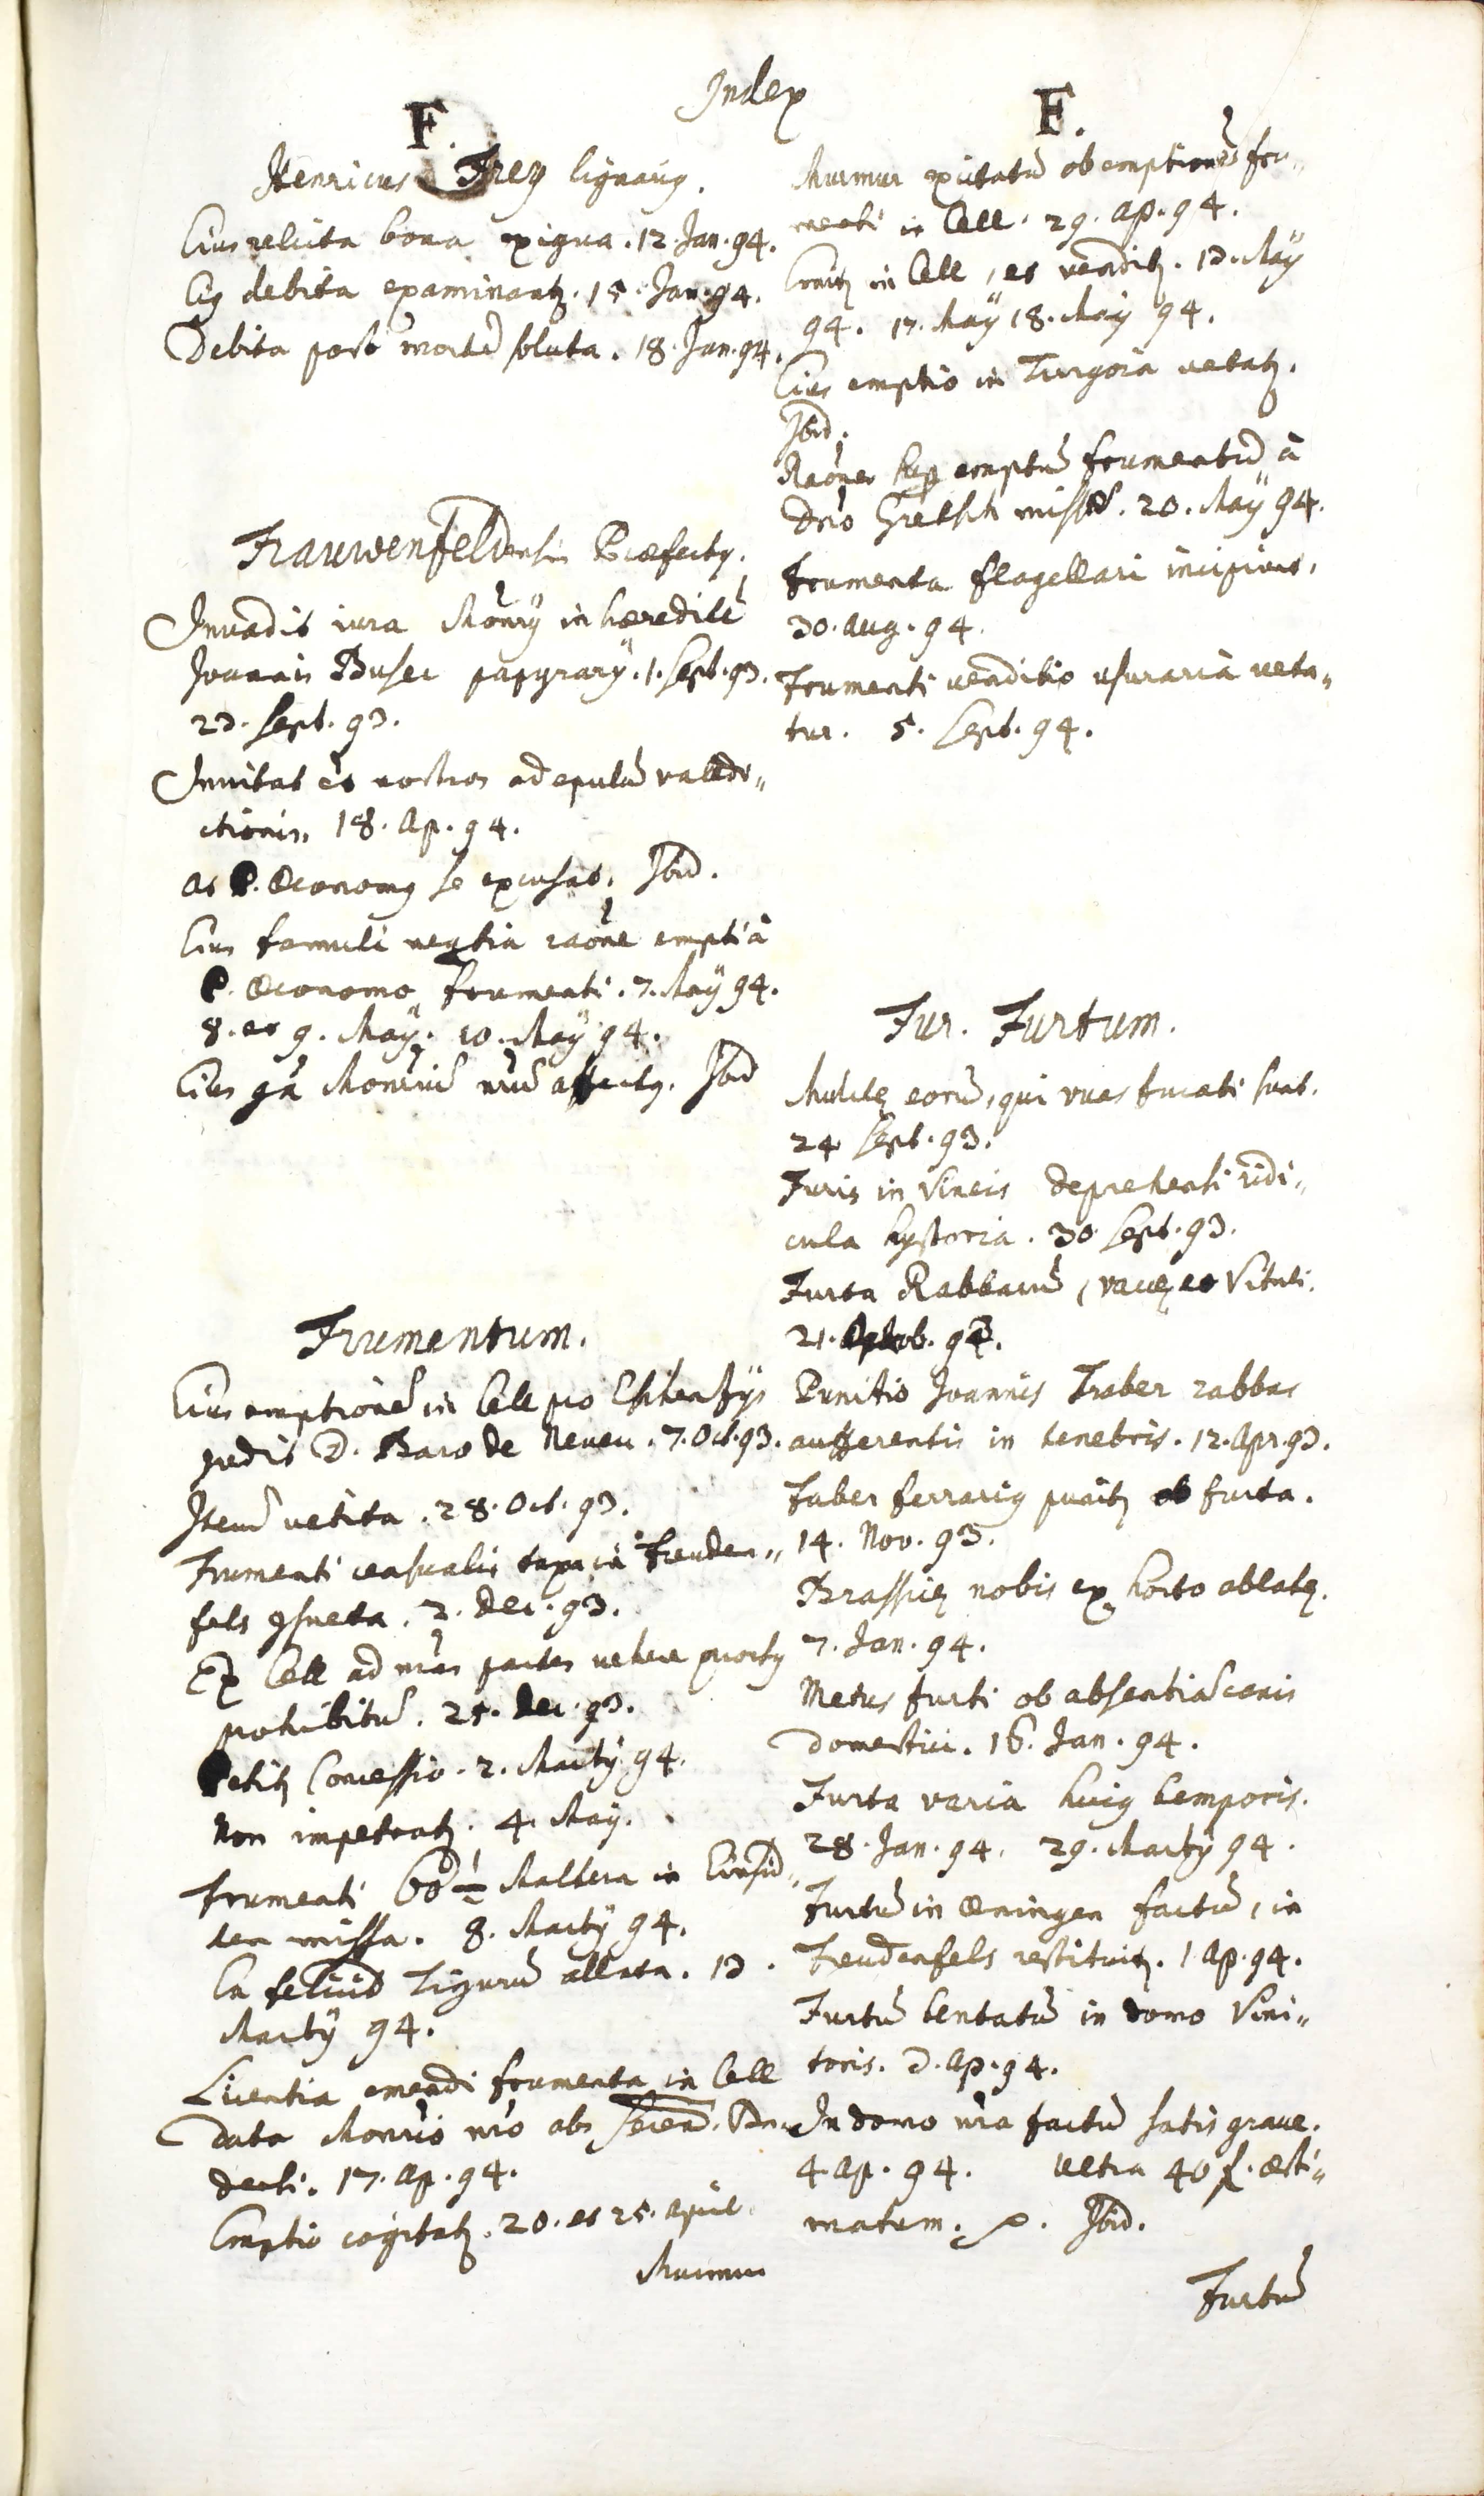 Index
F.
Henricus Frey lignariꝰ.
Eius relicta bona exigua. 12. Jan. 94.
Eiꝰ debita examinantꝫ. 15. Jan. 94.
Debita post mortē soluta. 18. Jan. 94.
Frauwenfeldensis Præfectꝰ.
Invadit iura Monrÿ in hæreditē
Joannis Buser papyrarÿ. 1. Sept. 93.
23. Sept. 93.
Invitat et nostros ad epulū valedi„
ctionis. 18. Ap. 94.
At P. Œconomꝰ se excusat. Ibid.
Eius famuli negotia raōne empti à
P. Œconomo frumenti. 7. Maÿ 94.
8. et 9. Maÿ. 10. Maÿ 94.
Eius ga Monriū nrū affectꝰ. Ibid
Frumentum.
Eius emptionē in Cell pro Eschentzÿs
pdit D. Baro de Neveu. 7. Oct. 93.
Itend vetita. 28. Oct. 93.
Frumenti censualis taxa in Freuden„
fels ꝯsueta. 2. Dec. 93.
Ex Cell ad nras partes vehere
prohibitū. 25. Dec. 93.
Petitꝫ Concessio. 2. Martÿ 94.
Non impetratꝫ. 4. Maÿ.
Frumenti 60 ½ Maltera in Einsid„
len missa. 8. Martÿ 94.
Ea Tigurū allata. 13.
Martÿ 94.
Licentia emendi frumenta in Cell
data Monrio nro abs Seren.
denti. 17. Ap. 94.
Emptio cogitatꝫ. 20. et 25. April
Murmur
F.
Murmur excitatū ob emptiones fru„
menti in Cell. 29. Ap. 94.
Emitꝫ in Cell, et venditꝫ. 13. Maÿ
94. 17. Maÿ 18. Maÿ 94.
Eius emptio in Turgoia vetatꝫ.
Ibid.
Raōnes sup emptū frumentū à
Dno Gretsch missæ. 20. Maÿ 94.
Frumenta flagellari incipiunt.
30. Aug. 94.
Frumenti venditio usuraria veta„
tur. 5. Sept. 94.
Fur. Furtum.
Mulctę eorū, qui vuas furati sunt.
24 Sept. 93.
Furis in Vineis deprehensi ridi„
cula hystoria. 30. Sept. 93.
Furta Rabbarū, vacę et Vituli.
21. Octob. 93.
Punitio Joannis Fraber rabbas
aufferentis in tenebris. 12. Apr. 93.
Faber ferrariꝰ punitꝫ ob furta.
14. Nov. 93.
Brassicę nobis ex horto ablatę.
7. Jan. 94.
Metus furti ob absentiā canis
domestici. 16. Jan. 94.
Furta varia huiꝰ temporis.
28. Jan. 94. 29. Martÿ 94.
Furtū in Œningen factū, in
Freudenfels restituitꝫ. 1 Ap. 94.
Furtū tentatū in domo Vini„
toris. 3. Ap. 94.
In domo nra factū satis graue.
4. Ap. 94. Ultra 40 f. æsti„
matum. Ibid.
Furtū